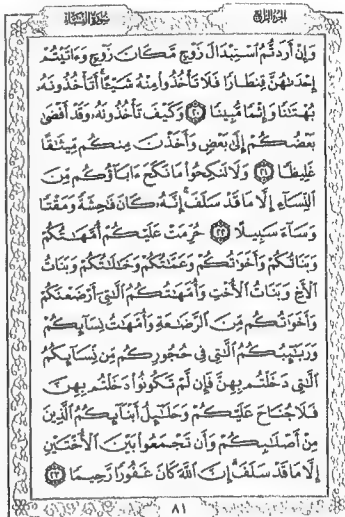 الجزء الرابع
سورة النساء
وَإِنْ أَرَدتُّمُ ٱسْتِبْدَالَ زَوْجٍ مَّكَانَ زَوْجٍ وَءَاتَيْتُمْ
إِحْدَىٰهُنَّ قِنطَارًا فَلَا تَأْخُذُوا۟ مِنْهُ شَيْـًٔا أَتَأْخُذُونَهُۥ
بُهْتَٰنًا وَإِثْمًا مُّبِينًا ٢٠ وَكَيْفَ تَأْخُذُونَهُۥ وَقَدْ أَفْضَىٰ
بَعْضُكُمْ إِلَىٰ بَعْضٍ وَأَخَذْنَ مِنكُم مِّيثَٰقًا
غَلِيظًا ٢١ وَلَا تَنكِحُوا۟ مَا نَكَحَ ءَابَآؤُكُم مِّنَ
ٱلنِّسَآءِ إِلَّا مَا قَدْ سَلَفَ إِنَّهُۥ كَانَ فَٰحِشَةً وَمَقْتًا
وَسَآءَ سَبِيلًا ٢٢ حُرِّمَتْ عَلَيْكُمْ أُمَّهَٰتُكُمْ
وَبَنَاتُكُمْ وَأَخَوَٰتُكُمْ وَعَمَّٰتُكُمْ وَخَٰلَٰتُكُمْ وَبَنَاتُ
ٱلْأَخِ وَبَنَاتُ ٱلْأُخْتِ وَأُمَّهَٰتُكُمُ ٱلَّٰتِىٓ أَرْضَعْنَكُمْ
وَأَخَوَٰتُكُم مِّنَ ٱلرَّضَٰعَةِ وَأُمَّهَٰتُ نِسَآئِكُمْ
وَرَبَٰٓئِبُكُمُ ٱلَّٰتِى فِى حُجُورِكُم مِّن نِّسَآئِكُمُ
ٱلَّٰتِى دَخَلْتُم بِهِنَّ فَإِن لَّمْ تَكُونُوا۟ دَخَلْتُم بِهِنَّ
فَلَا جُنَاحَ عَلَيْكُمْ وَحَلَٰٓئِلُ أَبْنَآئِكُمُ ٱلَّذِينَ
مِنْ أَصْلَٰبِكُمْ وَأَن تَجْمَعُوا۟ بَيْنَ ٱلْأُخْتَيْنِ
إِلَّا مَا قَدْ سَلَفَ إِنَّ ٱللَّهَ كَانَ غَفُورًا رَّحِيمًا ٢٣
٨١